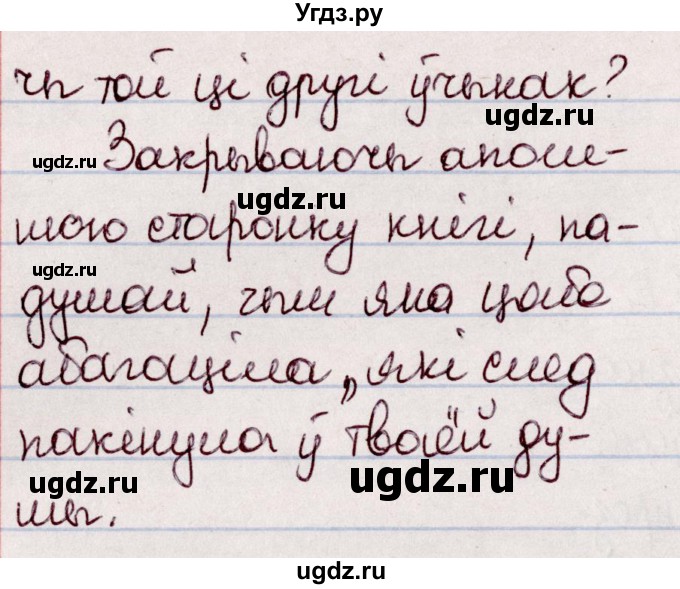 Угдз.ру
чы той ці другі ўчынак?
ugdz.ru
ugdz.ru
Закрываючы апош-
ugdz.ru
нюю старонку кнігі, па-
ugdz.ru
думай, чым яна цябе
ugdz.ru
абагаціла, які след
пакінула ў тваёй ду-
ugdz.ru
ugdz.ru
шы.
ugdz.ru